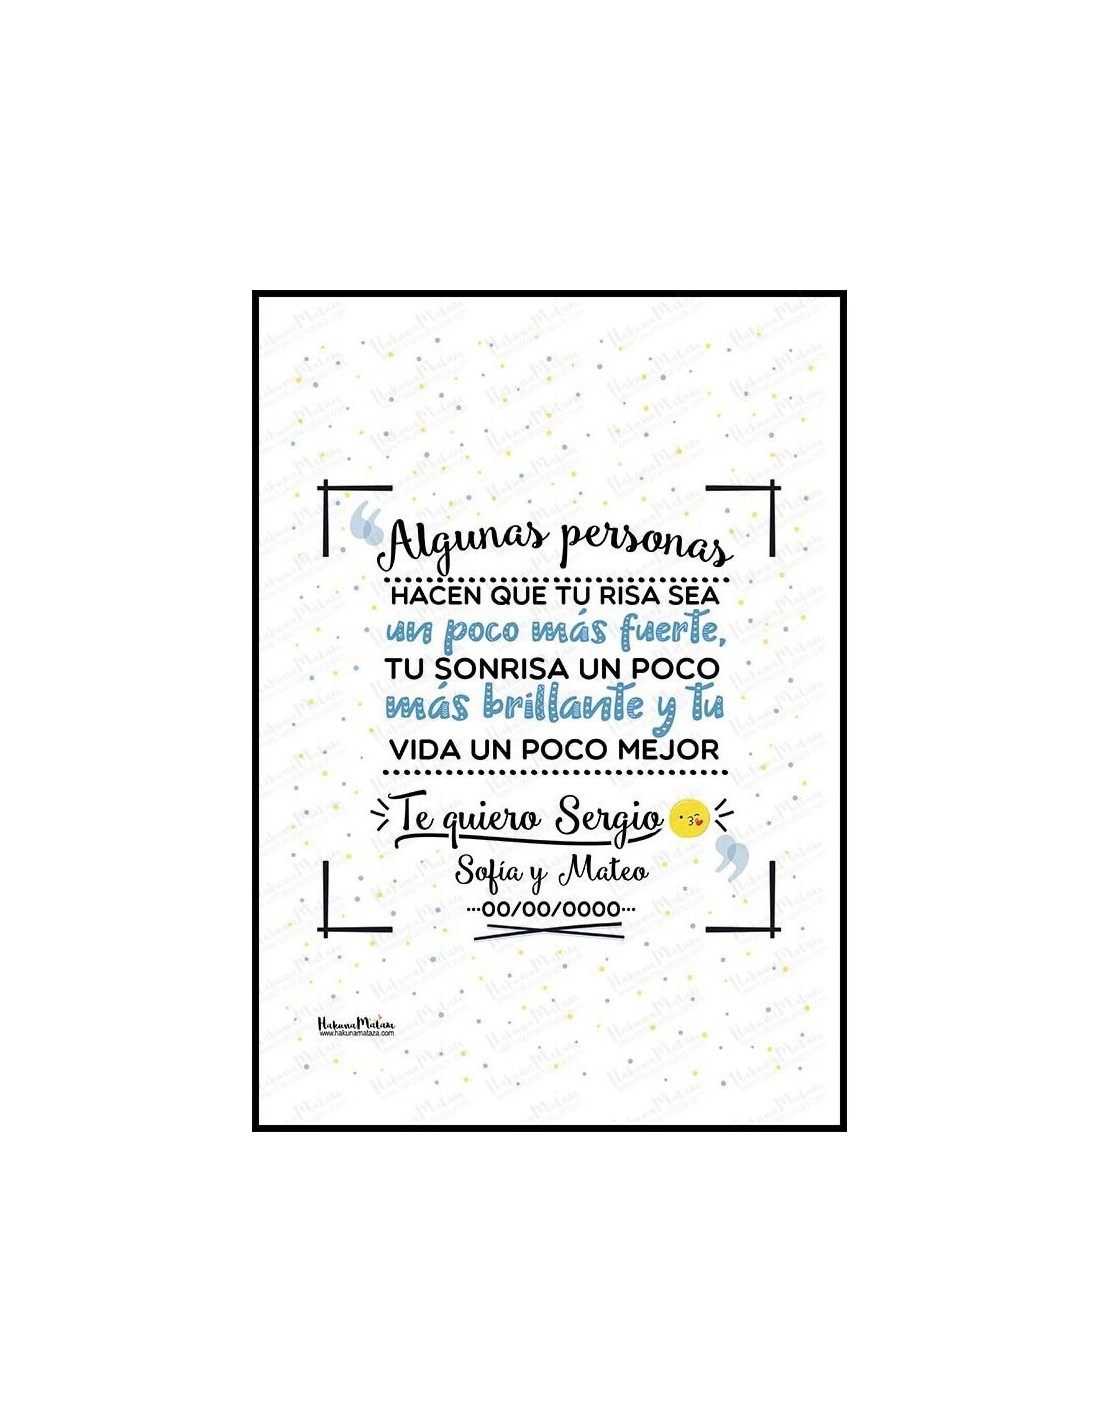 Algunas personas
HACEN QUE TU RISA SEA
un poco más fuerte,
TU SONRISA UN POCO
más brillante y tu
VIDA UN POCO MEJOR
Te quiero Sergio
Sofía y Mateo
...00/00/0000...
HakunaMataza
www.hakunamataza.com